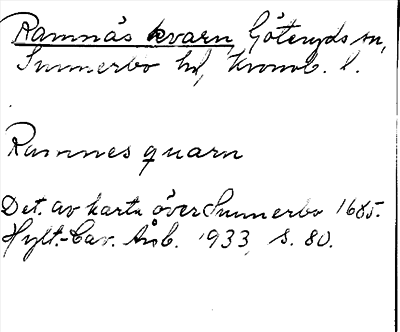 Ramnäs kvarn, Göteryds sn,
Sunnerbo hd, Kronob. l.
Ramnes quarn
Det. av karta över Sunnerbo 1685.
Hylt.-Cav. Årsb. 1933, s. 80.